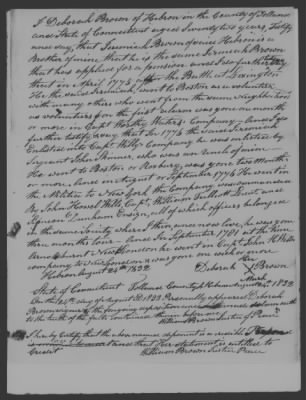 I Deborah Brown of Hebron in the County of Tolland
and State of Connecticut aged Seventy two years Testify
and say, that Jeremiah Brown of said Hebron is a
Brother of mine that he is the same Jeremiah Brown
that has applied for a pension and I so further say
that in April 1775 after the Battle at Lexington
He the said Jeremiah, went to Boston as a volunteer
with many others who went from the same neighborhood
as volunteers for the first alarm was gone a month
or more in Capt Worthy Waters Company - and I do
further testify & say that in 1776 the said Jeremiah
Enlisted into Capt Company he was enlisted by
Sergeant John Skinner, who was an uncle of mine
He went to Boston or Roxbury, was gone two Months
or more, and in August or September 1776 He went in
the Militia to New York the Company was commanded
By John Howel Wells, Capt, William Talbot Lieut and
Ensign, all of which officers belonged
in the same County where I then and now live, he was gone
three months tour - and in September 1781 at the time
Arnold burnt New London he went in Capt John H Wells
company to New London & was gone one week or more
Hebron August 24th 1832
Deborah Brown
Her
Mark
State of Connecticut Tolland County ss Hebron August 24th 1832
On this 24th day of August AD 1832 Personally appeared Deborah
Brown signer of the foregoing deposition and made oath
to the truth of the facts contained therein before me
William Brown Justice of Peace
I hereby Certify that the above named deponent is a credible
and that Her statement is entitled to
Credit
William Brown Justice Peace